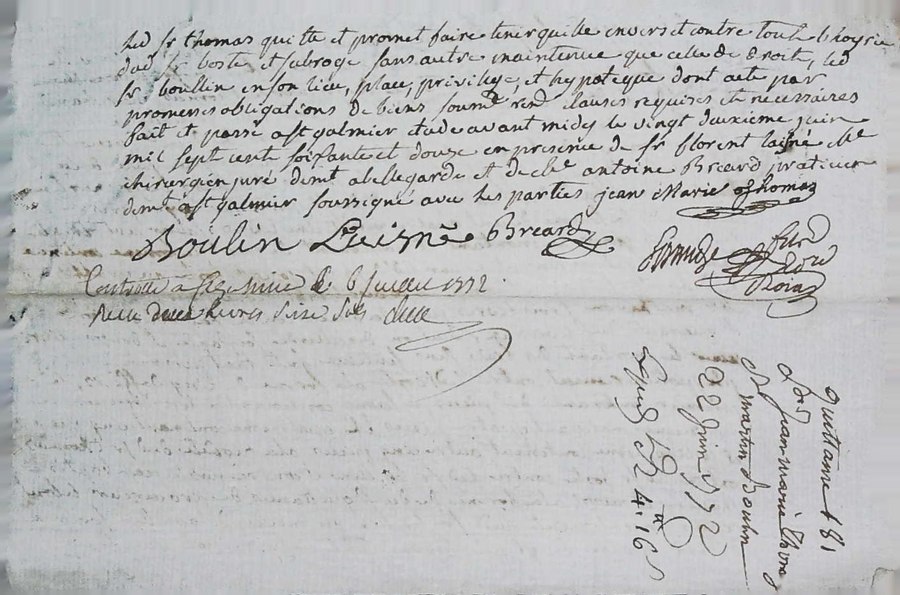 led Sr thomas quitte et promet faire tenir quitte envers et contre tous l'hoyrie
dud Sr boste et subroge sans autre maintenue que celle de droit, led
Sr boullin en son lieu, place, privilege, et hypoteque dont acte par
promesses obligations de biens soumon renon clauses requises et necessaires
fait et passé a St galmier etude avant midy le vingt deuxieme juin
mil sept cent soixante et douze en presence de Sr florent laisné Me
chirurgien juré demt a bellegarde et de Me antoine Breard praticien
demt a St galmier soussigné avec les parties jean Marie thomas
Boulin Leisné Breard
Controllé a St galmier le 6 juillet 1772
Recu deux livres seize sols
quitance 181
Sr jean marie thomas
a Sr martin boulin
22 juin 1772
4.16 s